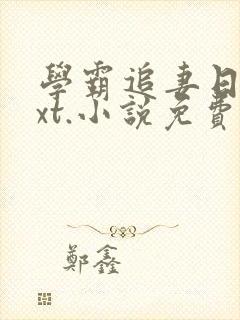 學霸追妻日
xt.小說免費
鄭鑫